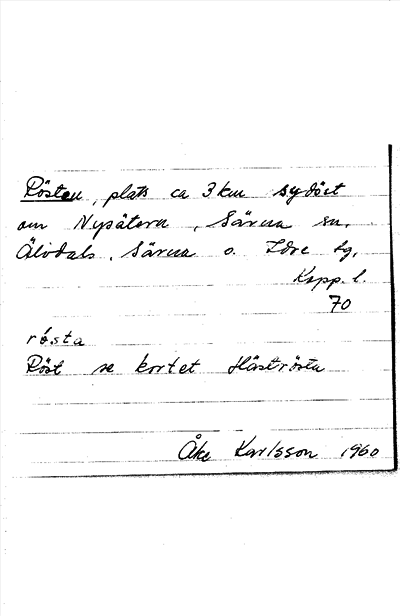 Rösten, plats ca 3 km sydöst
om Nysätern, Särna sn,
Älvdals, Särna o. Idre tg,
Kopp. l.
70
rósta
Röst se kortet Häströsta
Åke Karlsson 1960